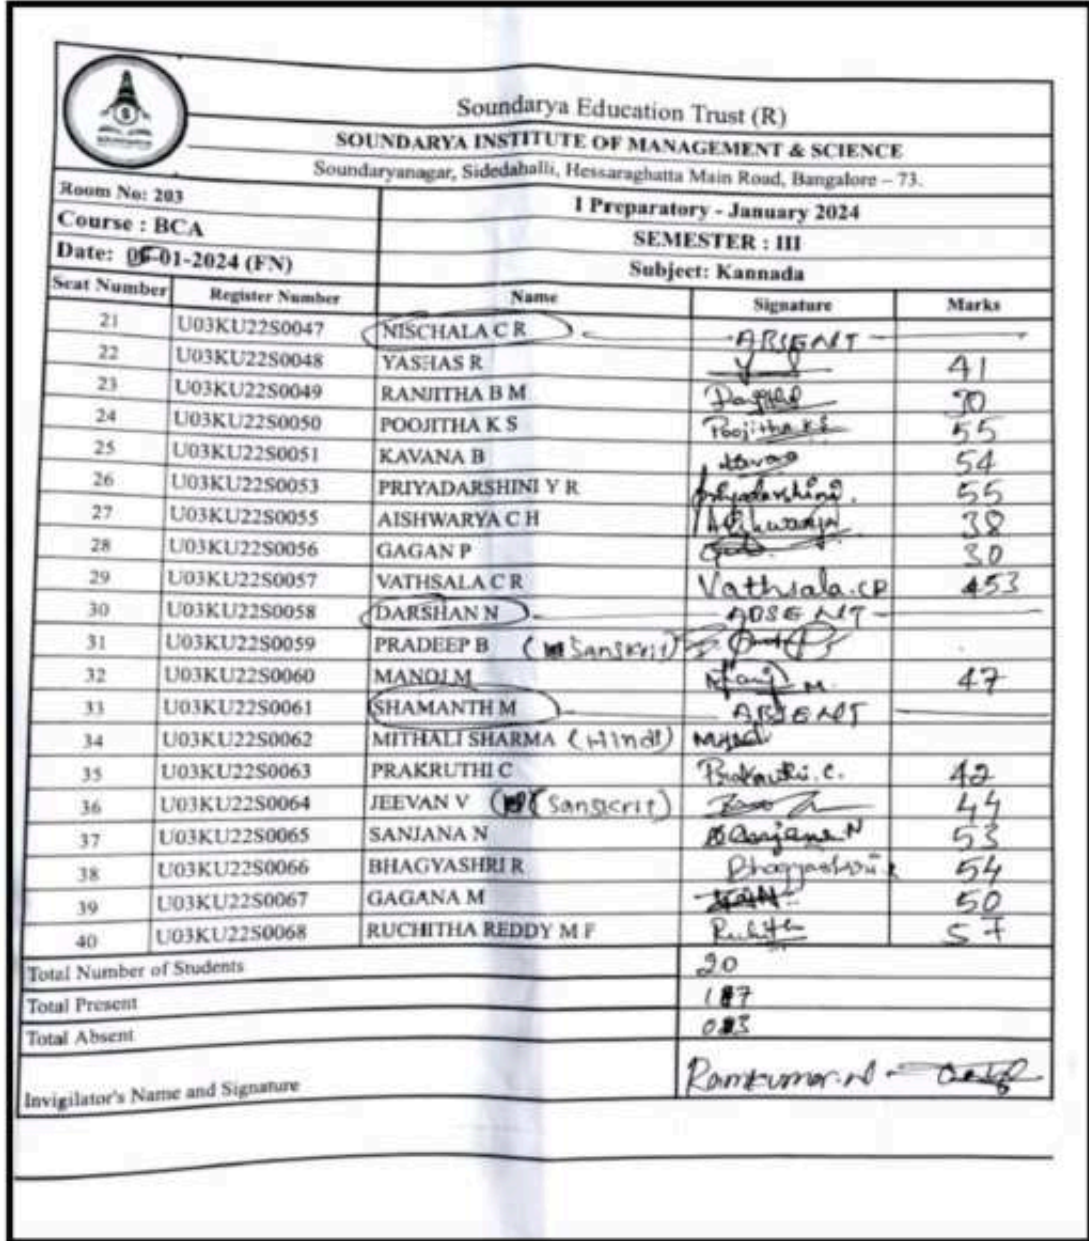 Soundarya Education Trust (R)
SOUNDARYA INSTITUTE OF MANAGEMENT & SCIENCE
Soundaryanagar, Sidedahalli, Hessaraghatta Main Road, Bangalore – 73.
Room No: 203
I Preparatory - January 2024
Course : BCA
SEMESTER : III
Date: 05-01-2024 (FN)
Subject: Kannada
Seat Number Register Number Name Signature Marks
21 U03KU22S0047 NISCHALA C R ABSENT
22 U03KU22S0048 YASHAS R 41
23 U03KU22S0049 RANJITHA B M
24 U03KU22S0050 POOJITHA K S Poojitha K S 55
25 U03KU22S0051 KAVANA B 54
26 U03KU22S0053 PRIYADARSHINI Y R Priyadarshini. 55
27 U03KU22S0055 AISHWARYA C H Aishwarya 38
28 U03KU22S0056 GAGAN P 30
29 U03KU22S0057 VATHSALA C R Vathsala.CR 53
30 U03KU22S0058 DARSHAN N ABSENT
31 U03KU22S0059 PRADEEP B (Sanskrit)
32 U03KU22S0060 MANOJ M 47
33 U03KU22S0061 SHAMANTH M ABSENT
34 U03KU22S0062 MITHALI SHARMA (Hindi)
35 U03KU22S0063 PRAKRUTHI C Prakruthi.C. 42
36 U03KU22S0064 JEEVAN V (Sanskrit) 44
37 U03KU22S0065 SANJANA N Sanjana N 53
38 U03KU22S0066 BHAGYASHRI R Bhagyashri R 54
39 U03KU22S0067 GAGANA M 50
40 U03KU22S0068 RUCHITHA REDDY M F 57
Total Number of Students 20
Total Present 17
Total Absent 03
Invigilator's Name and Signature Ramkumar.N